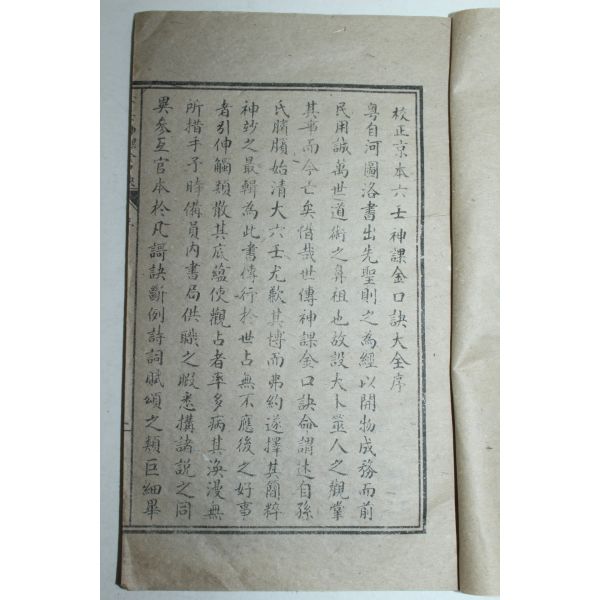 校正京本六壬神課金口訣大全序
粤自河圖洛書出先聖則之為經以開物成務而前
民用誠萬世道術之鼻祖也故設大卜筮人之觀掌
其事而今亡矣惜哉世傳神課金口訣命謂述自孫
氏臏頋始清大六壬尤歎其博而弗約遂擇其簡粹
神玅之最輯為此書傳行於世占無不應後之好事
者引伸觸類散其底蘊使觀占者率多病其渙漫無
所措手予時備員內書局供職之暇悉搆諸說之同
異參互官本於凡謌訣斷例詩詞賦頌之類巨細畢
神課金口訣